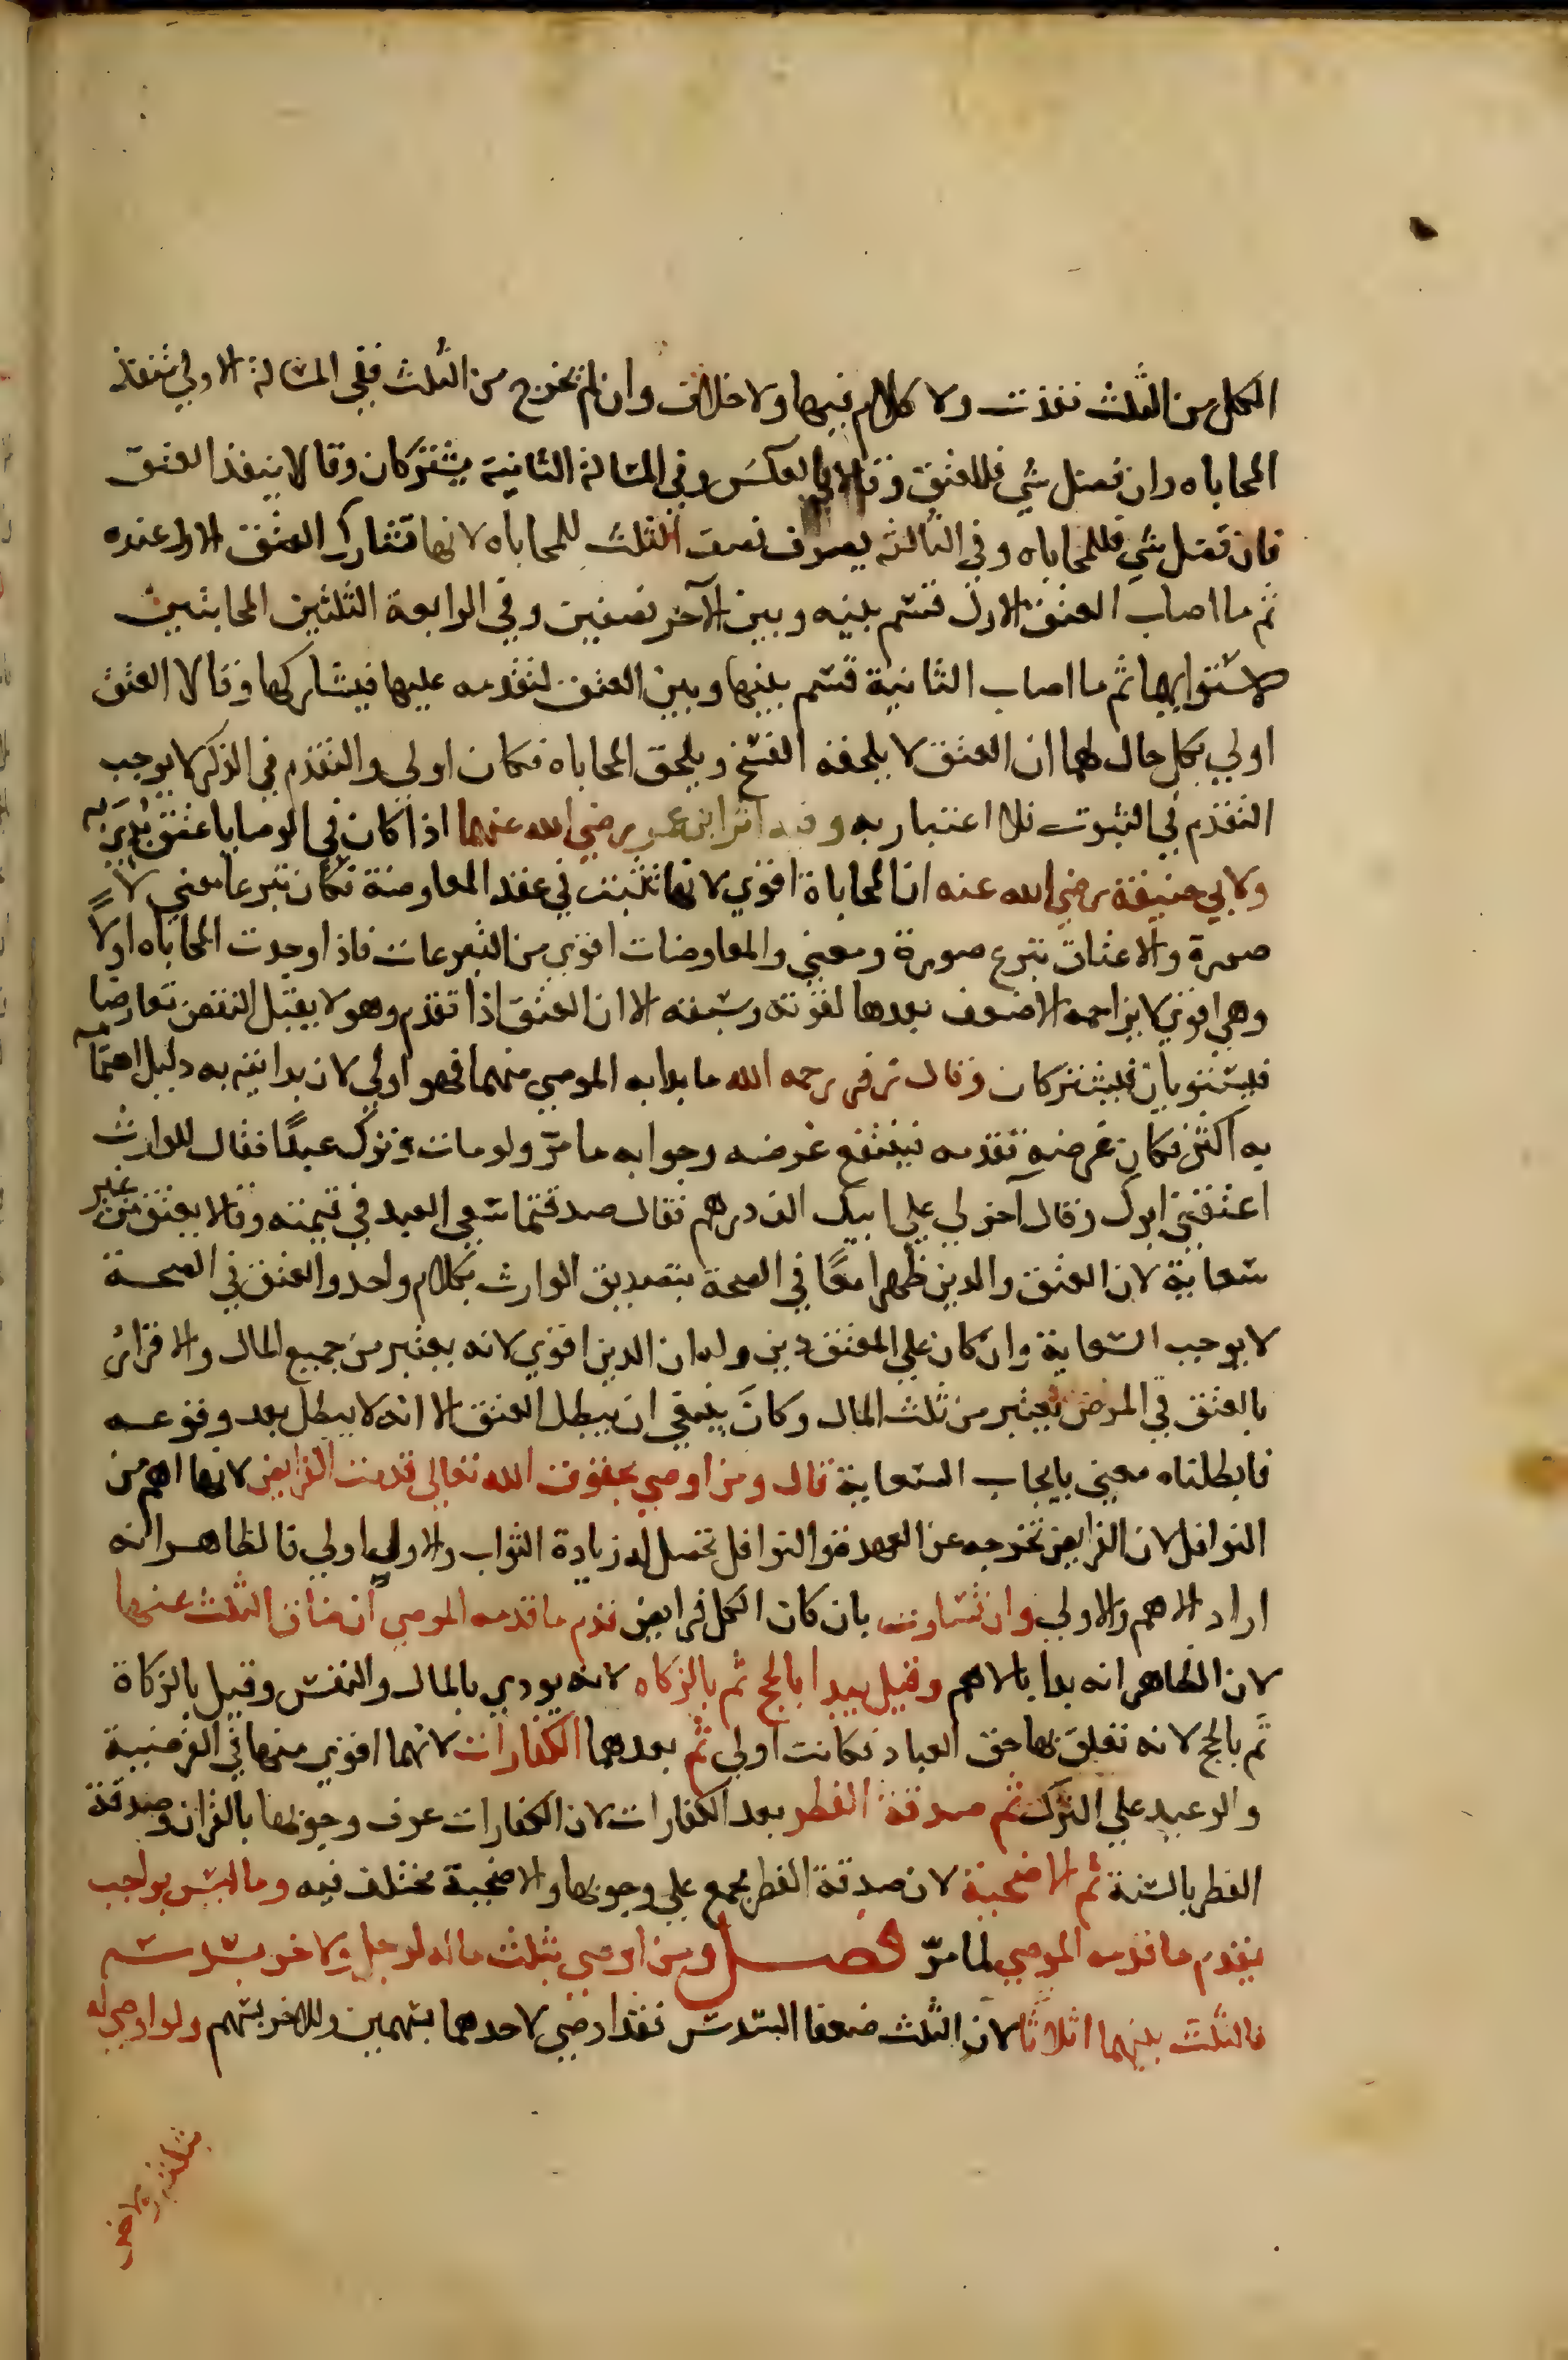 الكل من الثلث نفذت ولا كلام فيها ولا خلاف وان لم تخرج من الثلث ففي المسالة الاولي تنفذ
المحاباه وان فضل شي فللعتق وقالا بالعكس وفي المسالة الثانية يشتركان وقالا ينفذ العتق
فان فضل شي فللمحاباه وفي الثالثه يصرف نصف الثلث للمحاباه لانها تشارك العتق الاول عنده
ثم ما اصاب العتق الاول قسم بينه وبين الآخر نصفين وفي الرابعة الثلثين المحابتين
لاستوايهما ثم ما اصاب الثانية قسم بينها وبين العتق لتقدمه عليها فيشاركها وقالا العتق
اولي بكل حال لهما ان العتق لا يلحقه الفسخ ويلحق المحاباه فكان اولي والتقدم في الذكر لا يوجب
التقدم في الثبوت فلا اعتبار به وفيه اثر ابن عمر رضي الله عنهما اذا كان في الوصايا عتق بدي به
ولابي حنيفة رضي الله عنه ان المحاباة اقوي لانها تثبت في عقد المعاوضة فكان تبرعا معني لا
صورة والاعتاق تبرع صورة ومعني والمعاوضات اقوي من التبرعات فاذا وجدت المحاباه اولاً
وهي اقوي لا يزاحمه الاضعف بعدها لقوته وسبقه الا ان العتق اذا تقدم وهو لا يقبل النقض تعارضا
فيستويان فيشتركان وقال زفر رحمه الله ما بدا به الموصي منهما فهو اولي لان بدايته به دليل اهتمامه
به اكثر فكان غرضه تقدمه فيتبع غرضه وجوابه ما مرّ ولو مات وترك عبدًا فقال للوارث
اعتقني ابوك وقال آخر لي علي ابيك الف درهم فقال صدقتما سعي العبد في قيمته وقالا يعتق من غير
سعاية لان العتق والدين ظهرا معًا في الصحة بتصديق الوارث بكلام واحد والعتق في الصحة
لا يوجب السعاية وان كان علي المعتق دين وله ان الدين اقوي لانه يعتبر من جميع المال والاقرار
بالعتق في المرض يعتبر من ثلث المال وكان ينبغي ان يبطل العتق الا انه لا يبطل بعد وقوعه
فابطلناه معني بايجاب السعاية قال ومن اوصي بحقوق الله تعالي قدمت الفرايض لانها اهم من
النوافل لان الفرايض تخرجه عن العهدة والنوافل تحصل له زيادة الثواب والاول اولي فالظاهر انه
اراد الاهم والاولي وان تساوت بان كان الكل فرايض قدم ما قدمه الموصي ان ضاق الثلث عنها
لان الظاهر انه بدا بالاهم وقيل يبدا بالحج ثم بالزكاه لانه يودي بالمال والنفس وقيل بالزكاة
ثم بالحج لانه تعلق بها حق العباد فكانت اولي ثم بعدهما الكفارات لانهما اقوي منها في الفرضية
والوعيد علي الترك ثم صدقة الفطر بعد الكفارات لان الكفارات عرف وجوبها بالقران وصدقة
الفطر بالسنة ثم الاضحية لان صدقة الفطر مجمع علي وجوبها والاضحية مختلف فيه وما ليس بواجب
يقدم ما قدمه الموصي لما مرّ فصل ومن اوصي بثلث ماله لرجل ولاخر بسدسه
فالثلث بينهما اثلاثا لان الثلث ضعفا السدس فقد اوصي لاحدهما بسهمين وللاخر بسهم ولو اوصي له
بثلثه ولاخر